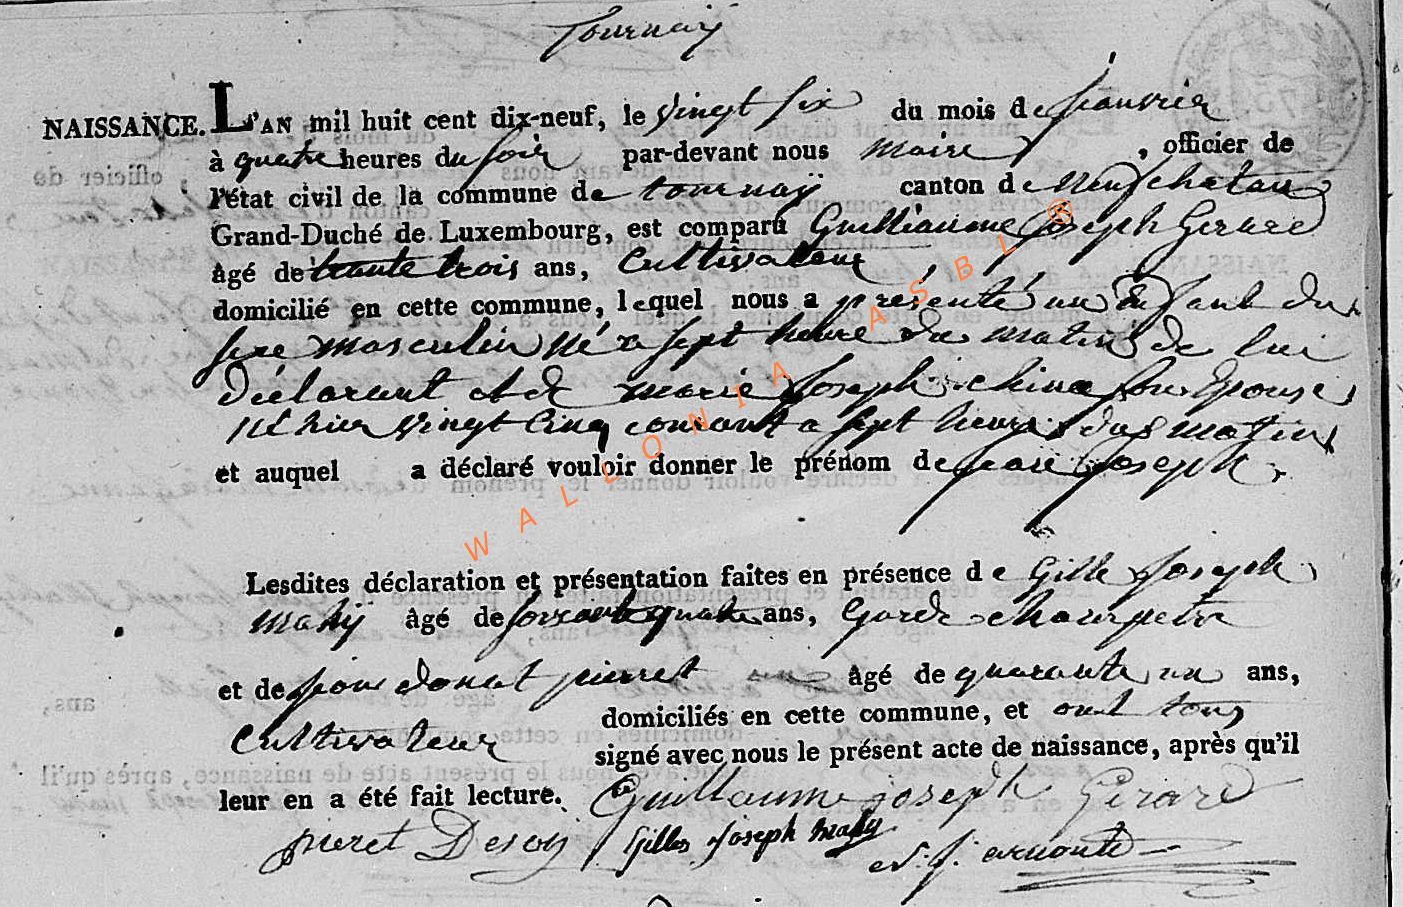 Tournay
NAISSANCE. L'AN mil huit cent dix-neuf, le vingt six du mois de janvier
à quatre heures du soir par-devant nous maire , officier de
l'état civil de la commune de tournaÿ canton de Neufchateau
Grand-Duché de Luxembourg, est comparu Guilliaume Joseph Gerard
âgé de trante trois ans, Cultivateur
domicilié en cette commune, lequel nous a présenté un enfant du
sexe masculin né a sept heure du matin de lui
déclarant et de marie Joseph china son Epouse
né hier vingt cinq courant a sept heure du matin
et auquel a déclaré vouloir donner le prénom de Jean Joseph
Lesdites déclaration et présentation faites en présence de Gille Joseph
mahÿ âgé de soixante quatre ans, Garde champetre
et de donat pierret âgé de quarante un ans,
Cultivateur domiciliés en cette commune, et ont tous
signé avec nous le présent acte de naissance, après qu'il
leur en a été fait lecture. Guillaume joseph Girard
pieret Gilles Joseph mahy
WALLONIA ASBL ®